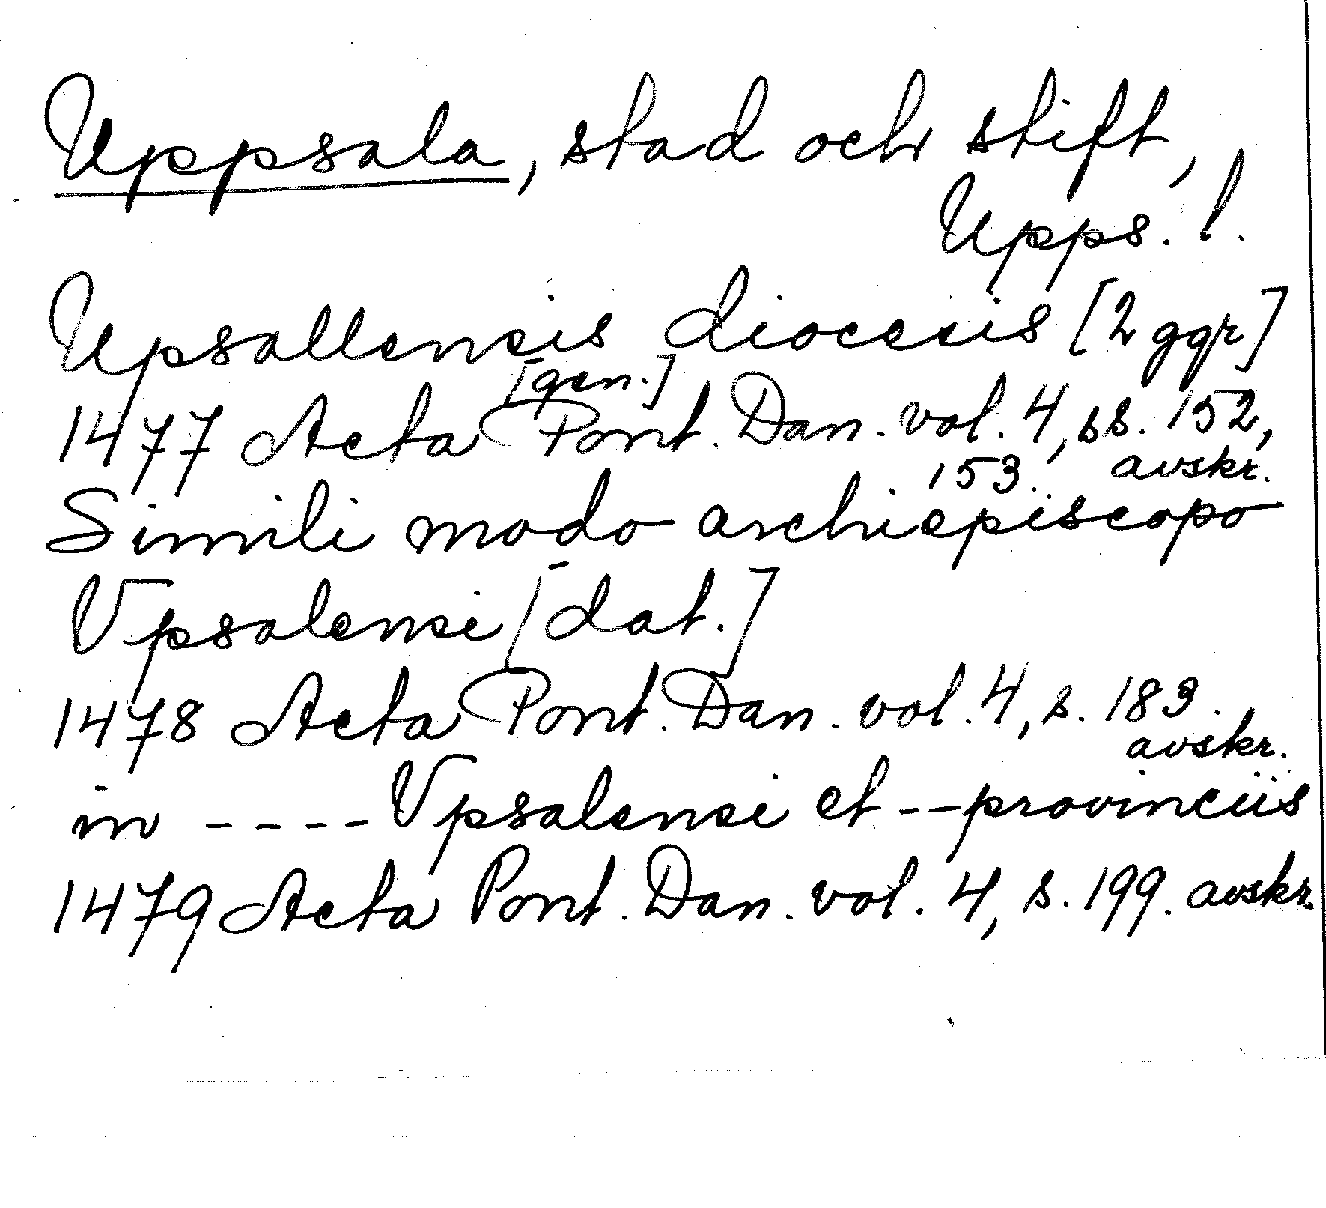 Uppsala, stad och stift,
Upps. l.
Upsallensis diocesis [2 ggr]
[gen.]
1477 Acta Pont. Dan. vol. 4, ss. 152,
153. avskr.
Simili modo archiepiscopo
Vpsalensi [dat.]
1478 Acta Pont. Dan. vol. 4, s. 183.
avskr.
in ---- Vpsalensi et -- provinciis
1479 Acta Pont. Dan. vol. 4, s. 199. avskr.